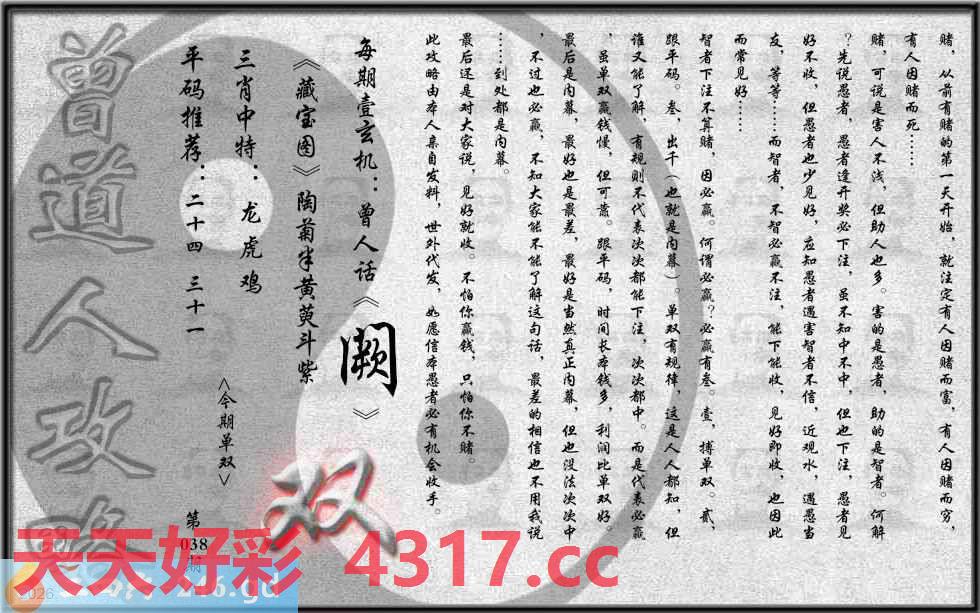 赌，从前有赌的第一天开始，就注定有人因赌而富，有人因赌而穷，
有人因赌而死……
赌，可说是害人不浅，但助人也多。害的是愚者，助的是智者。何解
？先说愚者，愚者逢开奖必下注，虽不知中不中，但也下注，愚者见
好不收，但愚者也少见好，应知愚者遇害智者不信，近观水，遇愚当
友，等等……而智者，不智必赢不注，能下能收，见好即收，也因此
而常见好……
智者下注不算赌，因必赢。何谓必赢？必赢有叁。壹，搏单双。贰，
跟平码。叁，出千（也就是内幕）。单双有规律，这是人人都知，但
谁又能了解，有规则不代表次次都能下注，次次都中。而是代表必赢
，虽单双赢钱慢，但可靠。跟平码，时间长本钱多，利润比单双好。
最后是内幕，最好也是最差，最好是当然真正内幕，但也没法次次中
，不过也必赢，不知大家能不能了解这句话，最差的相信也不用我说
……到处都是内幕。
最后还是对大家说，见好就收。不怕你赢钱，只怕你不赌。
此攻略由本人亲自发料，世外代发，如愿信本愚者必有机会收手。
每期壹玄机：曾人话《闕》
《藏宝图》陶菊半黄萸斗紫
三肖中特：龙虎鸡
平码推荐：二十四 三十一
<今期单双>
双
第
038
期
曾道人攻略
天天好彩 4317.cc
246.gd
2026